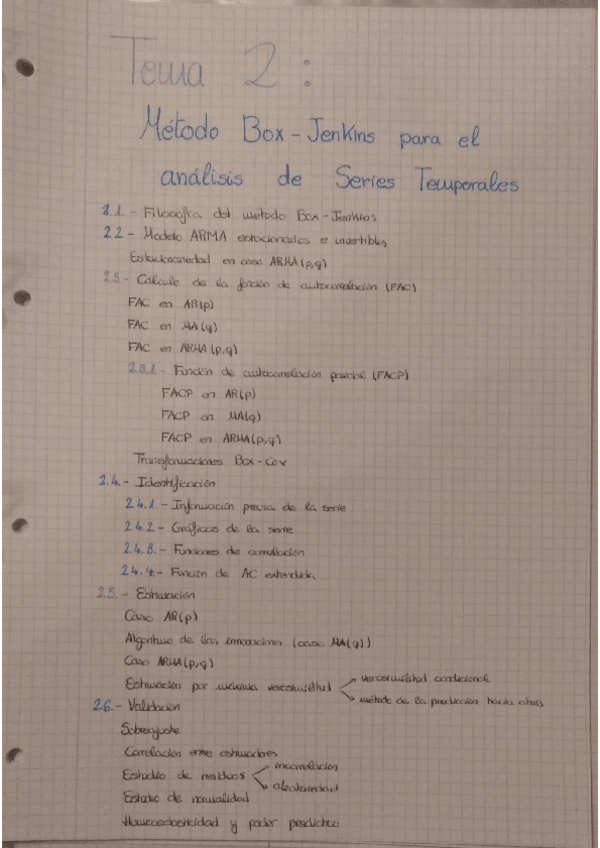 Tema 2:
Método Box-Jenkins para el
análisis de Series Temporales
2.1.- Filosofía del método Box-Jenkins
2.2.- Modelo ARMA estacionarios e invertibles
Estacionariedad en caso ARMA(p,q)
2.3.- Cálculo de la función de autocorrelación (FAC)
FAC en AR(p)
FAC en MA(q)
FAC en ARMA(p,q)
2.3.1.- Función de autocorrelación parcial (FACP)
FACP en AR(p)
FACP en MA(q)
FACP en ARMA(p,q)
Transformaciones Box-Cox
2.4.- Identificación
2.4.1.- Información previa de la serie
2.4.2.- Gráficos de la serie
2.4.3.- Funciones de correlación
2.4.4.- Función de AC extendida
2.5.- Estimación
Caso AR(p)
Algoritmo de las innovaciones (caso MA(q))
Caso ARMA(p,q)
Estimación por máxima verosimilitud verosimilitud condicional
método de la predicción hacia atrás
2.6.- Validación
Sobreajuste
Correlación entre estimadores
Estudio de residuos incorrelación
aleatoriedad
Estudio de normalidad
Homocedasticidad y poder predictivo